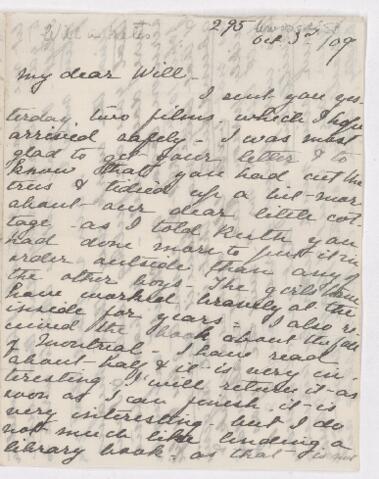 295
Oct 3rd/09
My dear Will -
I sent you yes-
terday two films which I hope
arrived safely - I was most
glad to get your letter & to
know that you had cut the
trees & tidied up a bit more
about our dear little cot-
tage - as I told Ruth you
had done more to put it in
order outside than any of
the other boys - The girls
have worked bravely at the
inside for years - I also re-
ceived the book about the
of Montreal - I have read
about half & it is very in-
teresting I will return it as
soon as I can finish it is
very interesting - but I do
not much like lending a
library book - as that is not